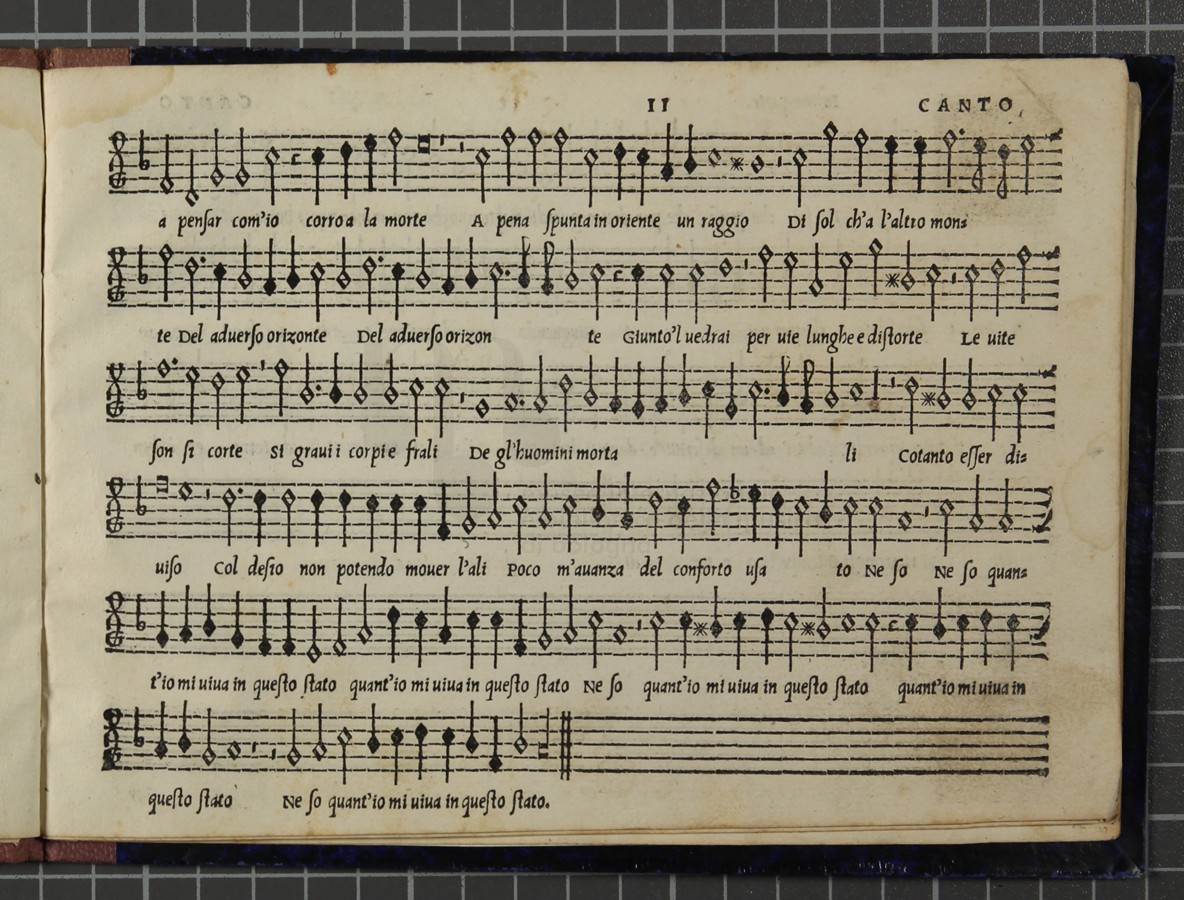 II CANTO
a penſar com'io corro a la morte A pena ſpunta in oriente un raggio Di ſol ch'a l'altro mon⸗
te Del aduerſo orizonte Del aduerſo orizon te Giunto'l uedrai per uie lunghe e diſtorte Le uite
ſon ſi corte Si graui i corpi e frali De gl'huomini morta li Cotanto eſſer di⸗
uiſo Col deſio non potendo mouer l'ali Poco m'auanza del conforto uſa to Ne ſo Ne ſo quan⸗
t'io mi uiua in queſto ſtato quant'io mi uiua in queſto ſtato Ne ſo quant'io mi uiua in queſto ſtato quant'io mi uiua in
queſto ſtato Ne ſo quant'io mi uiua in queſto ſtato.